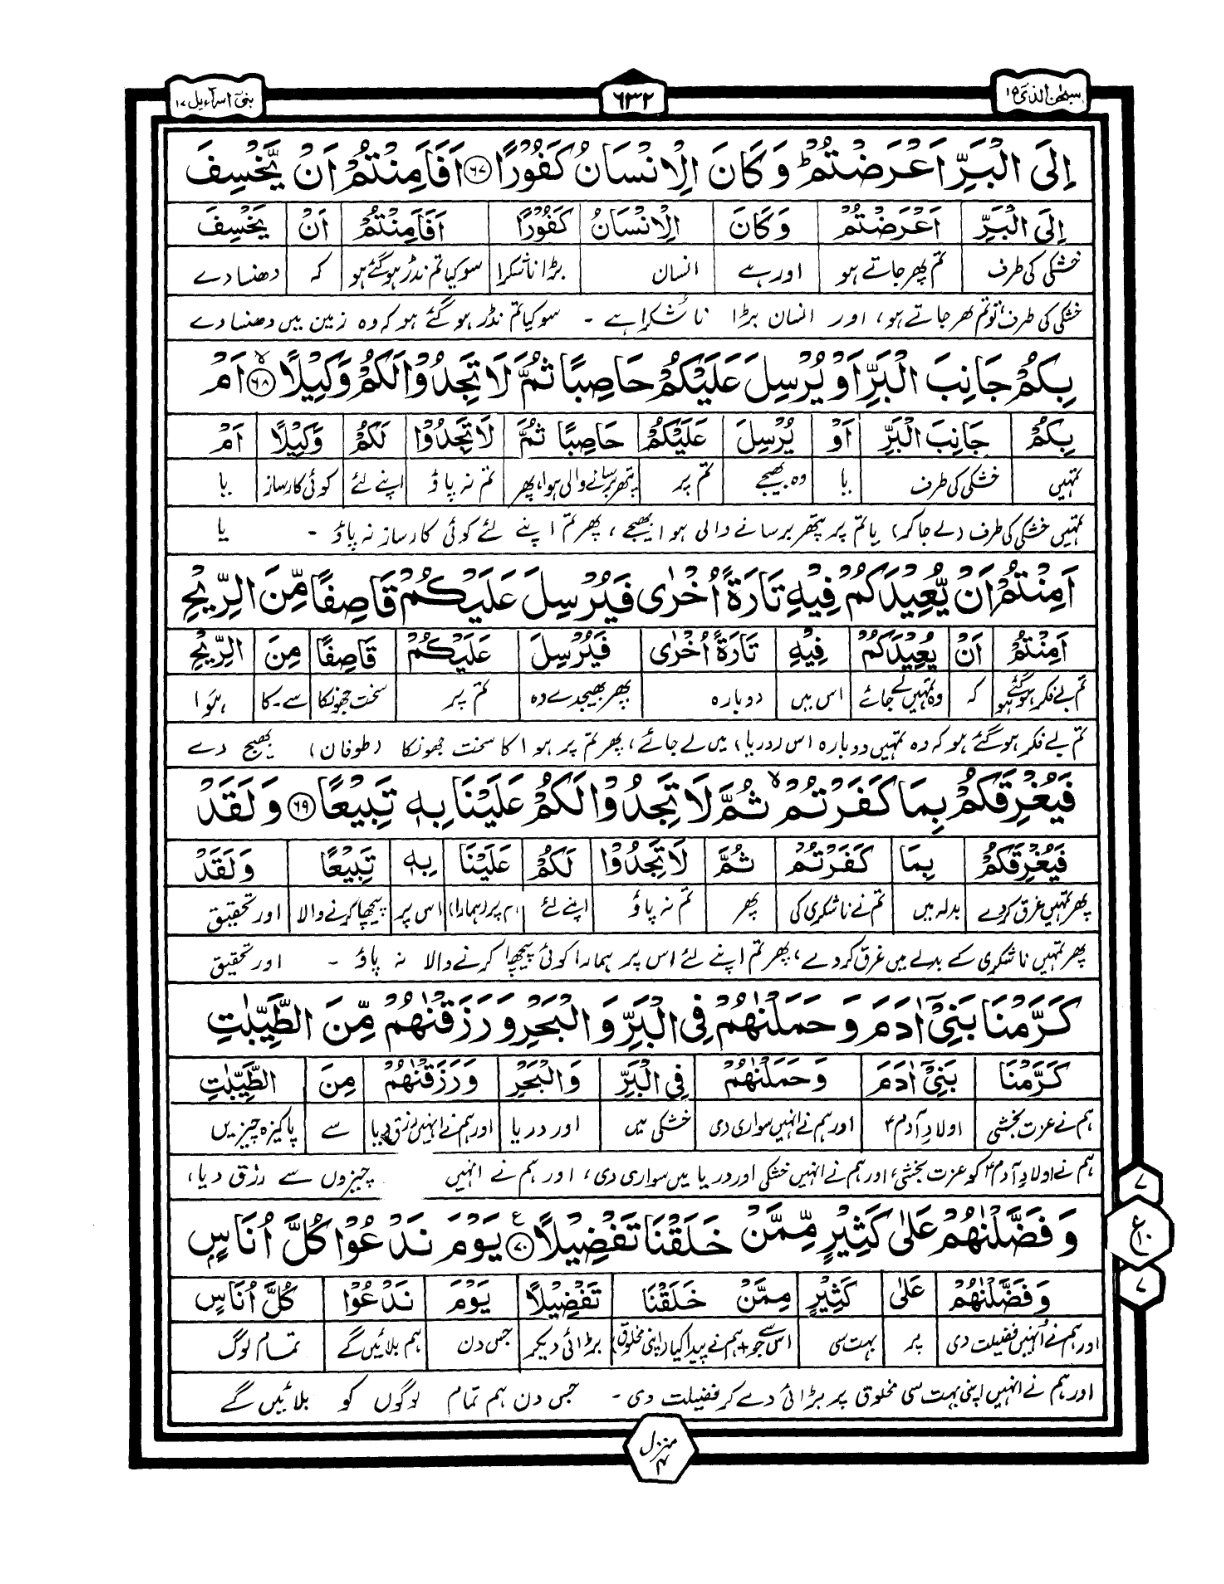 سبحٰن الذی ۱۵
۶۳۲
بنی اسرآءیل ۱۷
اِلَى الْبَرِّ اَعْرَضْتُمْ ؕ وَكَانَ الْاِنْسَانُ كَفُوْرًا ۶۷ اَفَاَمِنْتُمْ اَنْ يَّخْسِفَ
اِلَى الْبَرِّ اَعْرَضْتُمْ وَكَانَ الْاِنْسَانُ كَفُوْرًا اَفَاَمِنْتُمْ اَنْ يَخْسِفَ
خشکی کی طرف تم پھر جاتے ہو اور ہے انسان بڑا ناشکرا سو کیا تم نڈر ہو گئے ہو کہ دھنسا دے
خشکی کی طرف تو تم پھر جاتے ہو، اور انسان بڑا ناشکرا ہے ۔ سو کیا تم نڈر ہو گئے ہو کہ وہ زمین میں دھنسا دے
بِكُمْ جَانِبَ الْبَرِّ اَوْ يُرْسِلَ عَلَيْكُمْ حَاصِبًا ثُمَّ لَا تَجِدُوْا لَكُمْ وَكِيْلًا ۶۸ۙ اَمْ
بِكُمْ جَانِبَ الْبَرِّ اَوْ يُرْسِلَ عَلَيْكُمْ حَاصِبًا ثُمَّ لَا تَجِدُوْا لَكُمْ وَكِيْلًا اَمْ
تمہیں خشکی کی طرف یا وہ بھیجے تم پر پتھر برسانے والی ہوا، پھر تم نہ پاؤ اپنے لئے کوئی کارساز یا
تمہیں خشکی کی طرف (لے جا کر) یا تم پر پتھر برسانے والی ہوا بھیجے، پھر تم اپنے لئے کوئی کارساز نہ پاؤ ۔ یا
اَمِنْتُمْ اَنْ يُّعِيْدَكُمْ فِيْهِ تَارَةً اُخْرٰى فَيُرْسِلَ عَلَيْكُمْ قَاصِفًا مِّنَ الرِّيْحِ
اَمِنْتُمْ اَنْ يُعِيْدَكُمْ فِيْهِ تَارَةً اُخْرٰى فَيُرْسِلَ عَلَيْكُمْ قَاصِفًا مِنَ الرِّيْحِ
تم بے فکر ہو گئے ہو کہ وہ تمہیں لے جائے اس میں دوبارہ پھر بھیجدے وہ تم پر سخت جھونکا سے۔کا ہوا
تم بے فکر ہو گئے ہو کہ وہ تمہیں دوبارہ اس (دریا) میں لے جائے، پھر تم پر ہوا کا سخت جھونکا (طوفان) بھیج دے
فَيُغْرِقَكُمْ بِمَا كَفَرْتُمْ ۙ ثُمَّ لَا تَجِدُوْا لَكُمْ عَلَيْنَا بِهٖ تَبِيْعًا ۶۹ وَلَقَدْ
فَيُغْرِقَكُمْ بِمَا كَفَرْتُمْ ثُمَّ لَا تَجِدُوْا لَكُمْ عَلَيْنَا بِهٖ تَبِيْعًا وَلَقَدْ
پھر تمہیں غرق کر دے بدلہ میں تم نے ناشکری کی پھر تم نہ پاؤ اپنے لئے ہم پر (ہمارا) اس پر پیچھا کرنے والا اور تحقیق
پھر تمہیں ناشکری کے بدلے میں غرق کر دے، پھر تم اپنے لئے اس پر ہمارا کوئی پیچھا کرنے والا نہ پاؤ ۔ اور تحقیق
كَرَّمْنَا بَنِىْٓ اٰدَمَ وَحَمَلْنٰهُمْ فِى الْبَرِّ وَالْبَحْرِ وَرَزَقْنٰهُمْ مِّنَ الطَّيِّبٰتِ
كَرَّمْنَا بَنِىْٓ اٰدَمَ وَحَمَلْنٰهُمْ فِى الْبَرِّ وَالْبَحْرِ وَرَزَقْنٰهُمْ مِنَ الطَّيِّبٰتِ
ہم نے عزت بخشی اولادِ آدم ؑ اور ہم نے انہیں سواری دی خشکی میں اور دریا اور ہم نے انہیں رزق دیا سے پاکیزہ چیزیں
ہم نے اولادِ آدم ؑ کو عزت بخشی، اور ہم نے انہیں خشکی اور دریا میں سواری دی، اور ہم نے انہیں چیزوں سے رزق دیا،
وَفَضَّلْنٰهُمْ عَلٰى كَثِيْرٍ مِّمَّنْ خَلَقْنَا تَفْضِيْلًا ۷۰ۧ يَوْمَ نَدْعُوْا كُلَّ اُنَاسٍۭ
وَفَضَّلْنٰهُمْ عَلٰى كَثِيْرٍ مِمَّنْ خَلَقْنَا تَفْضِيْلًا يَوْمَ نَدْعُوْا كُلَّ اُنَاسٍ
اور ہم نے انہیں فضیلت دی پر بہت سی اس سے جو + ہم نے پیدا کیا (اپنی مخلوق) بڑائی دیکر جس دن ہم بلائیں گے تمام لوگ
اور ہم نے انہیں اپنی بہت سی مخلوق پر بڑائی دے کر فضیلت دی ۔ جس دن ہم تمام لوگوں کو بلائیں گے
۷
ع ۱۰
۷
منزل ۴